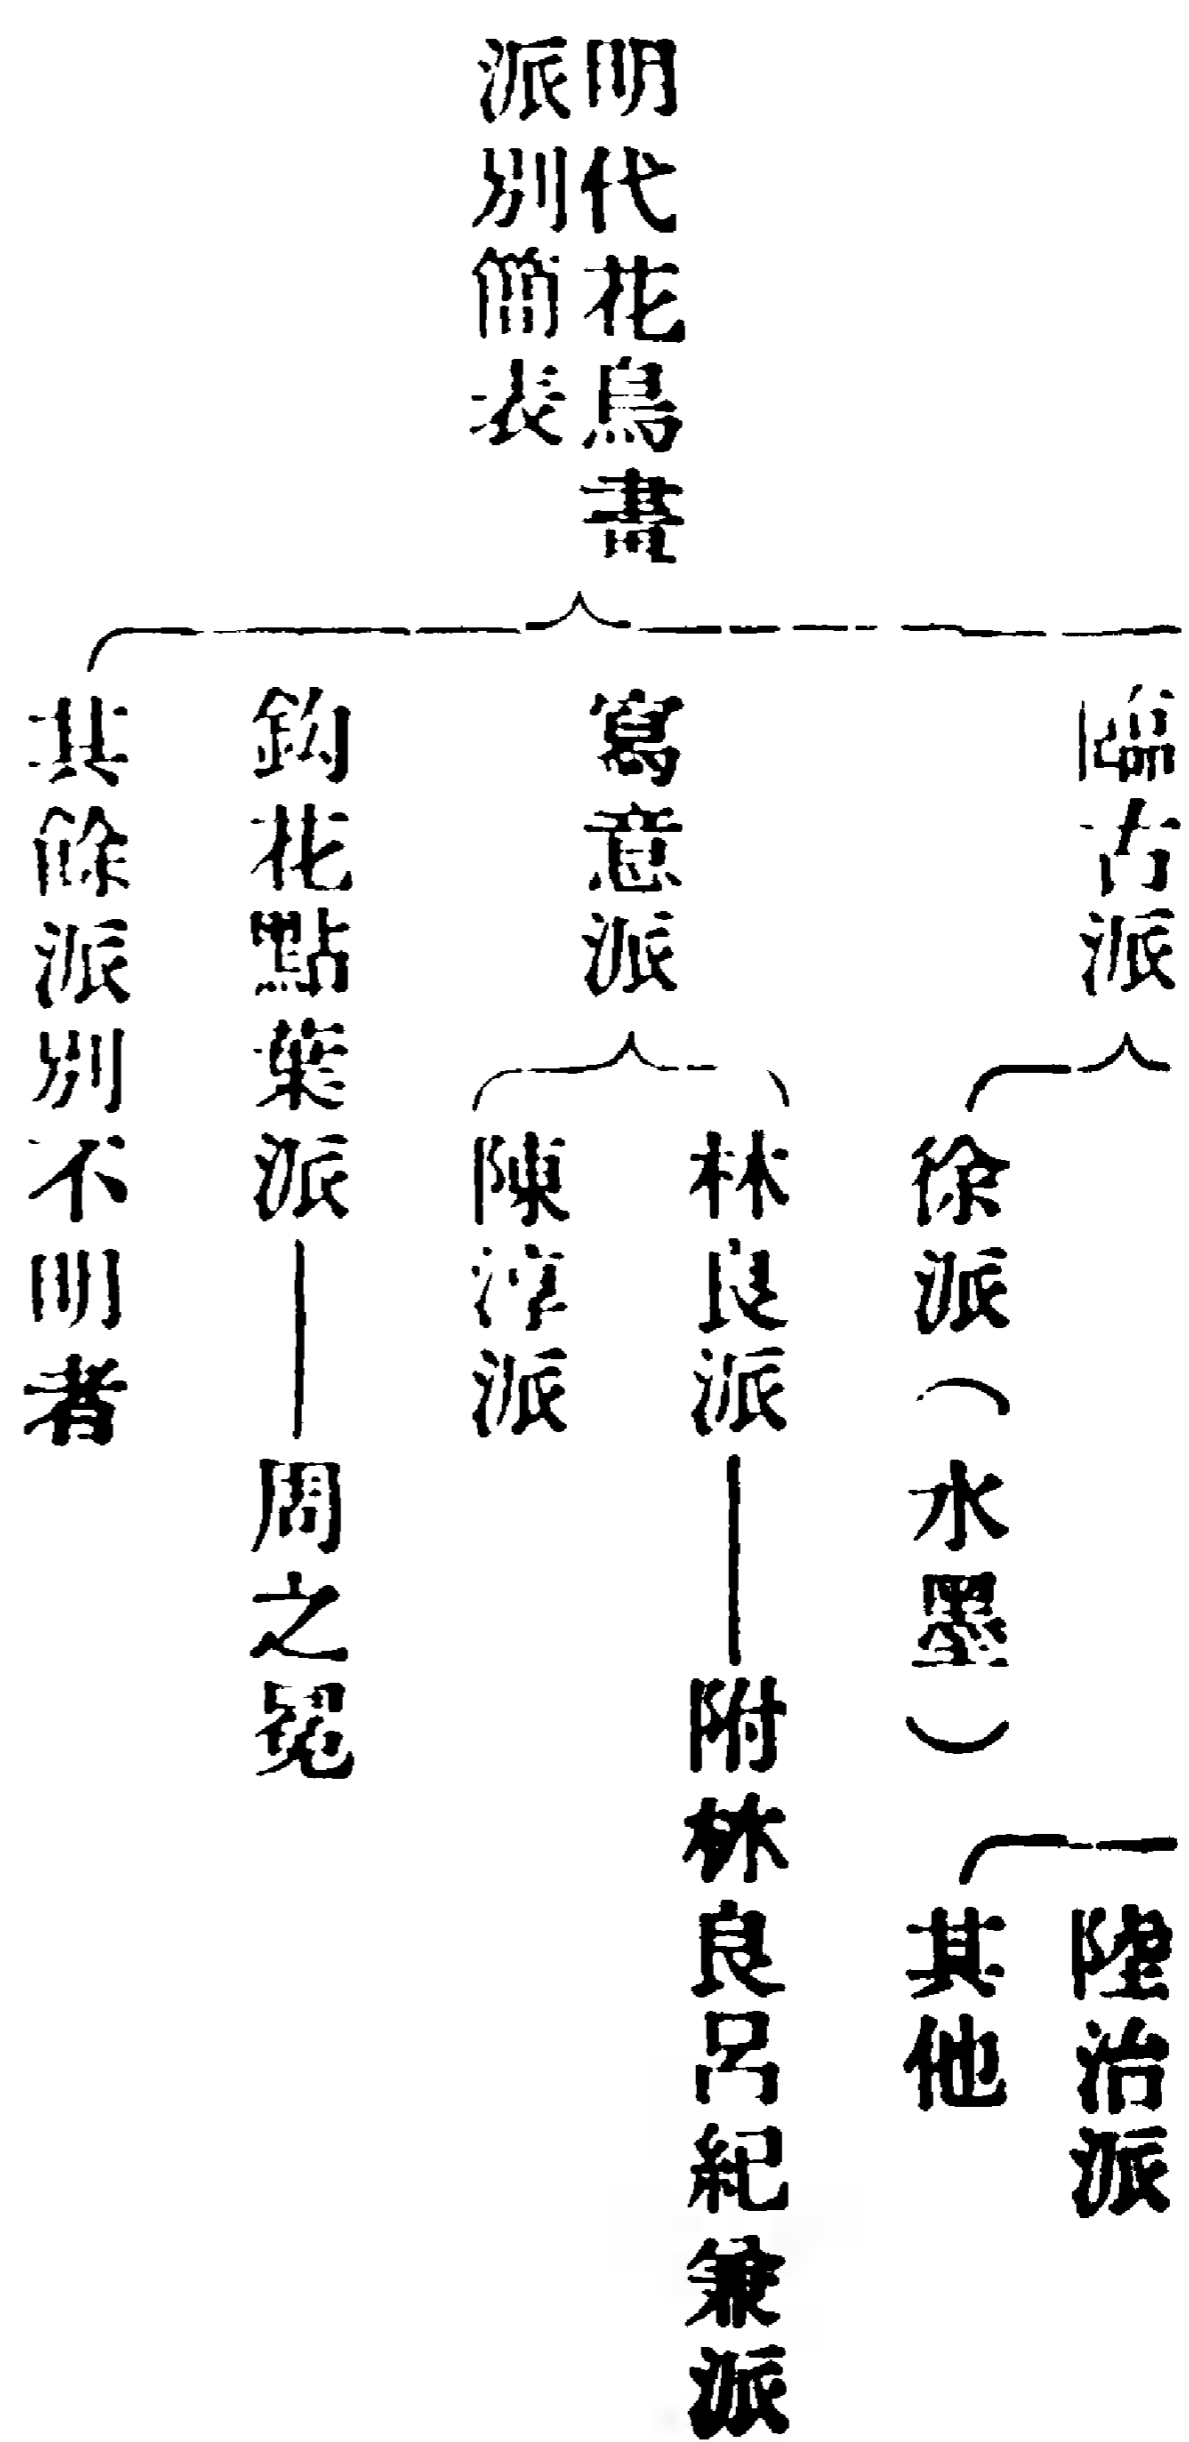 明代花鳥畫
派別簡表
臨古派
徐派（水墨）
陸治派
其他
寫意派
林良派——附林良呂紀兼派
陳淳派
鈎花點葉派——周之冕
其餘派別不明者